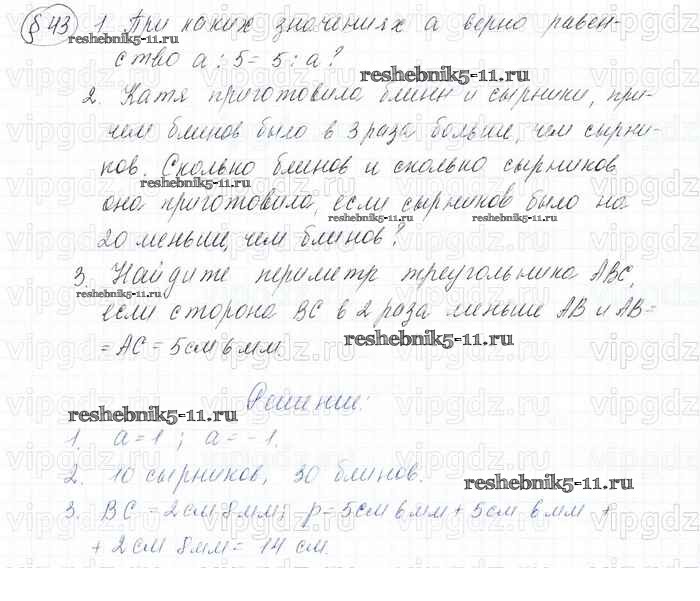 § 43 1. При каких значениях a верно равен-
ство a : 5 = 5 : a?
2. Катя приготовила блины и сырники, при-
чем блинов было в 3 раза больше, чем сырни-
ков. Сколько блинов и сколько сырников
она приготовила, если сырников было на
20 меньше, чем блинов?
3. Найдите периметр треугольника ABC,
если сторона BC в 2 раза меньше AB и AB=
= AC = 5 см 6 мм.
Решение:
1. a = 1 ; a = -1.
2. 10 сырников, 30 блинов.
3. BC = 2 см 8 мм; p = 5 см 6 мм + 5 см 6 мм +
+ 2 см 8 мм = 14 см.
reshebnik5-11.ru
reshebnik5-11.ru
reshebnik5-11.ru
reshebnik5-11.ru
reshebnik5-11.ru
reshebnik5-11.ru
reshebnik5-11.ru
reshebnik5-11.ru
reshebnik5-11.ru
vipgdz.ru